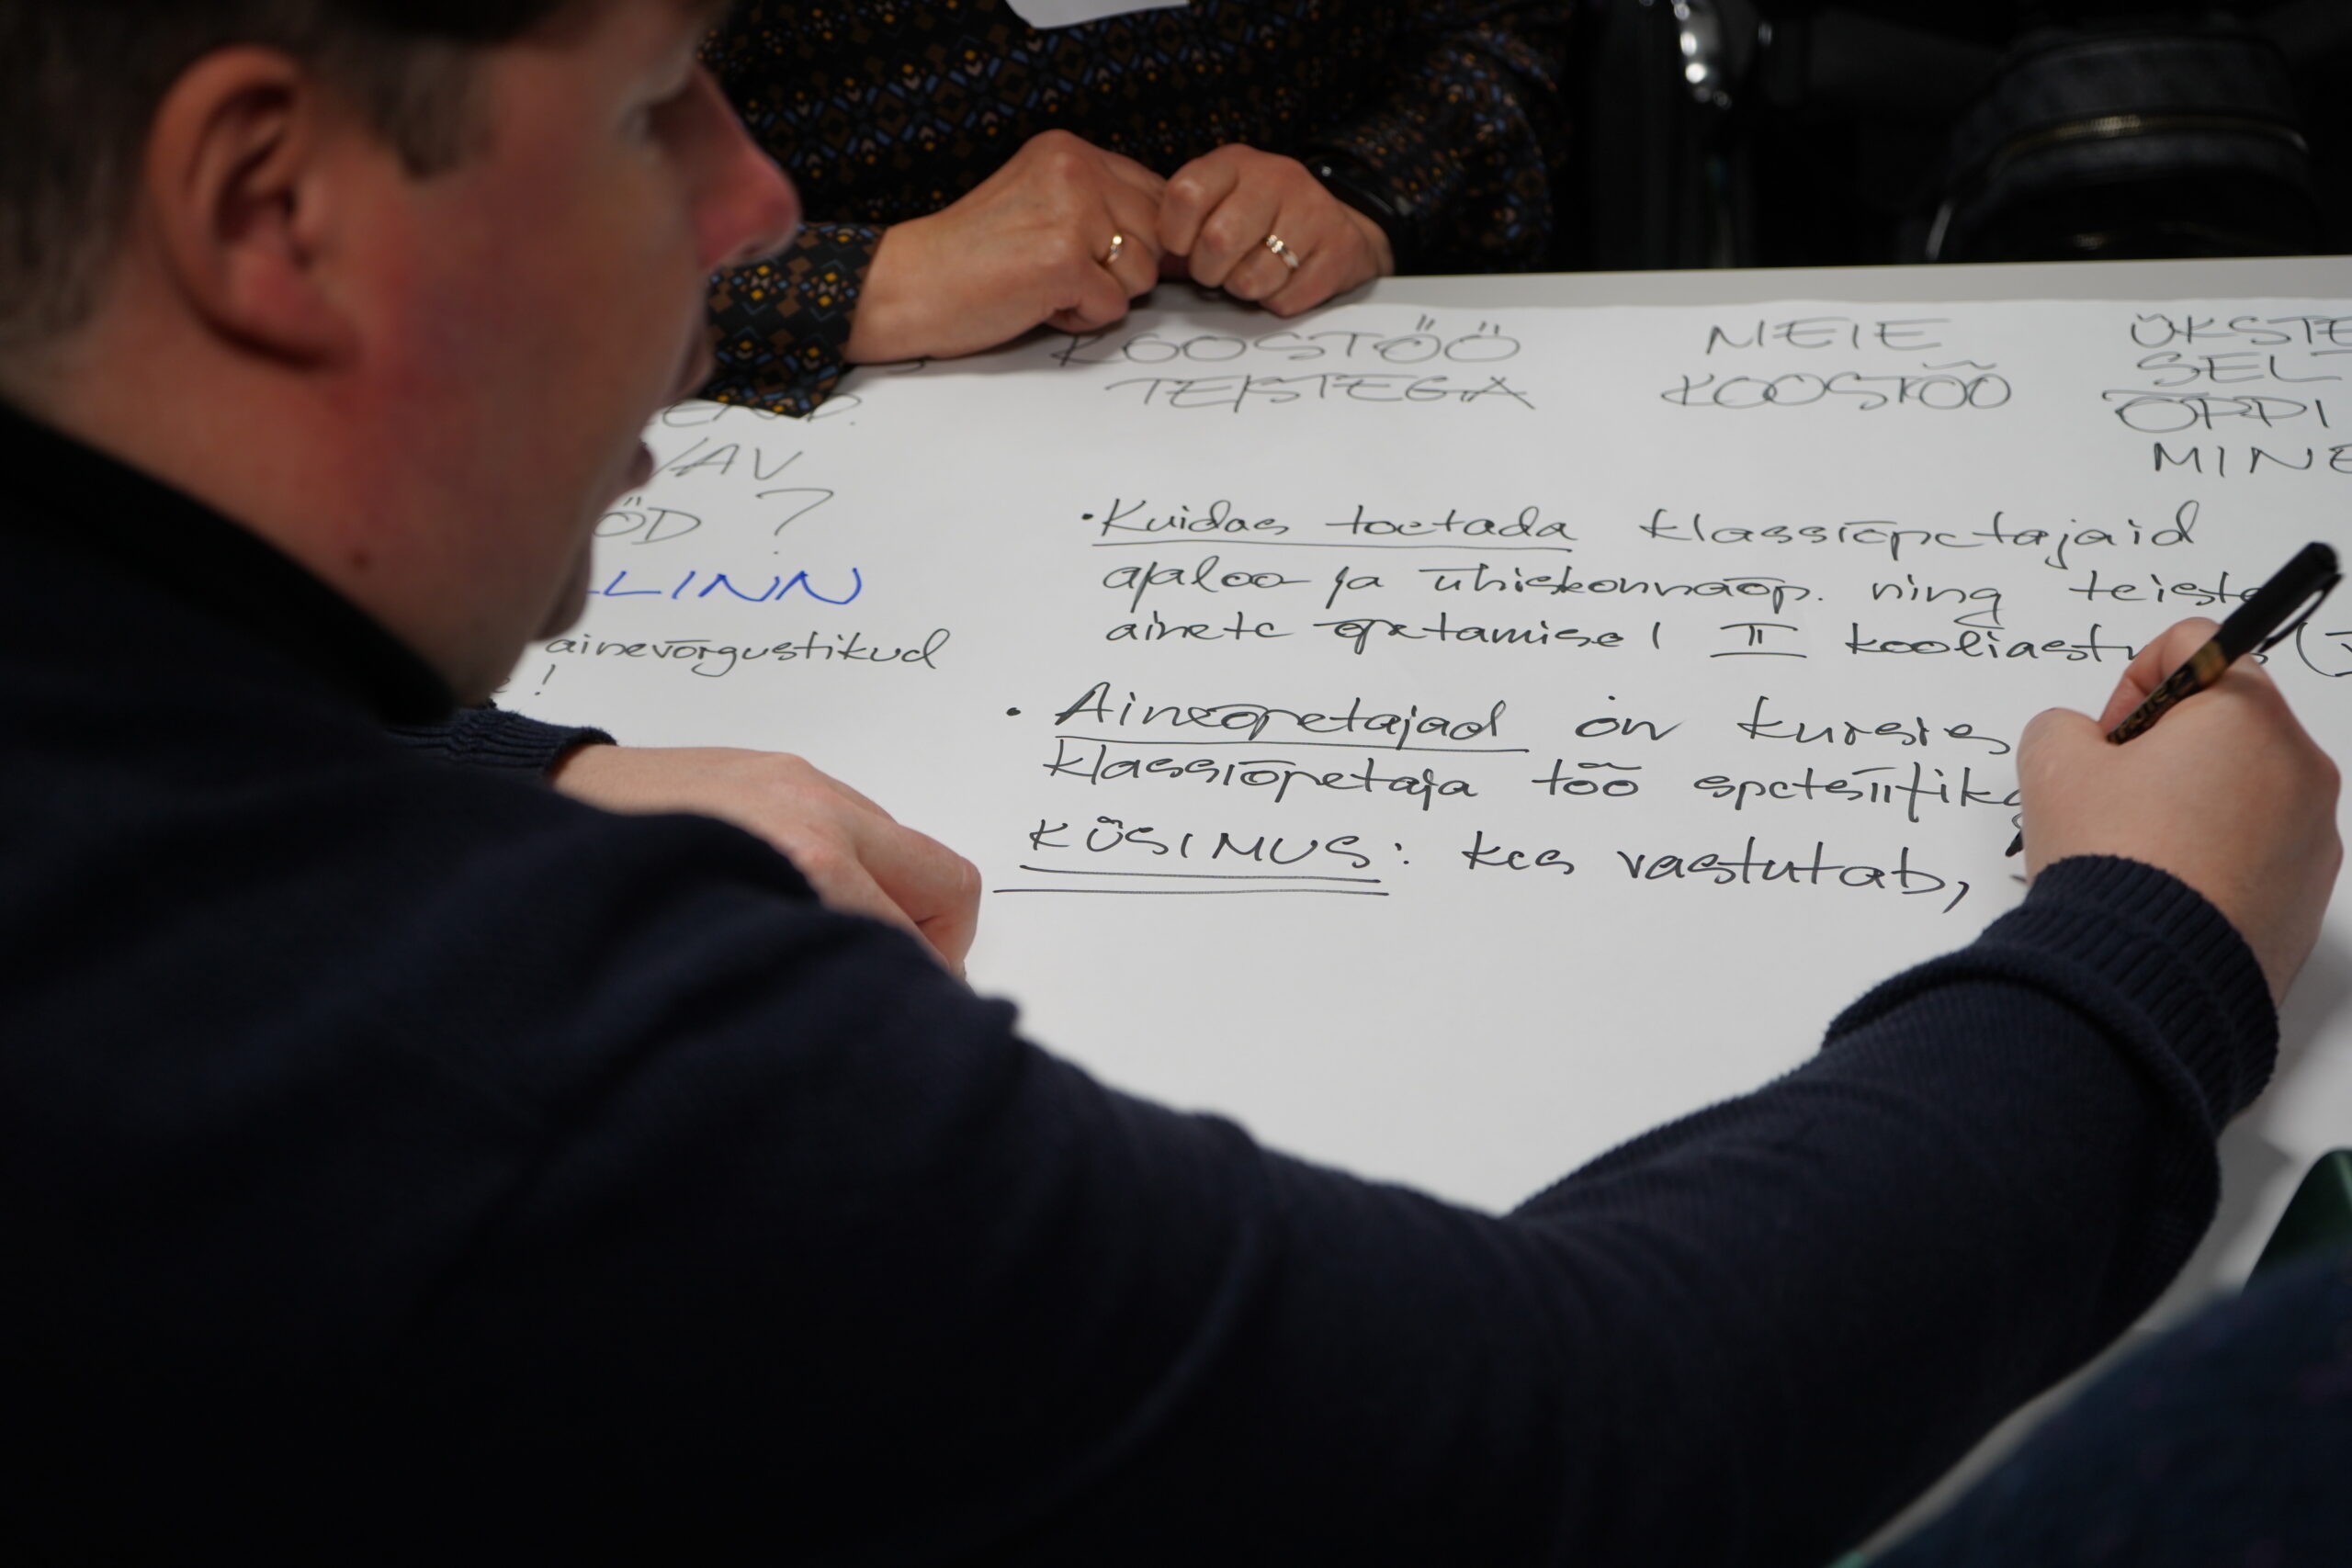 KOOSTÖÖ
TEISTEGA
MEIE
KOOSTÖÖ
ÜKSTE
SEL
ÕPPI
MINE
VAV
ÖD ?
LLINN
ainevõrgustikud
!
• Kuidas toetada klassiõpetajaid
ajaloo ja ühiskonnaõp. ning teiste
ainete õpetamisel II kooliastmes (
• Aineõpetajad on kursis
klassiõpetaja töö spetsiifika
KÜSIMUS: kes vastutab,